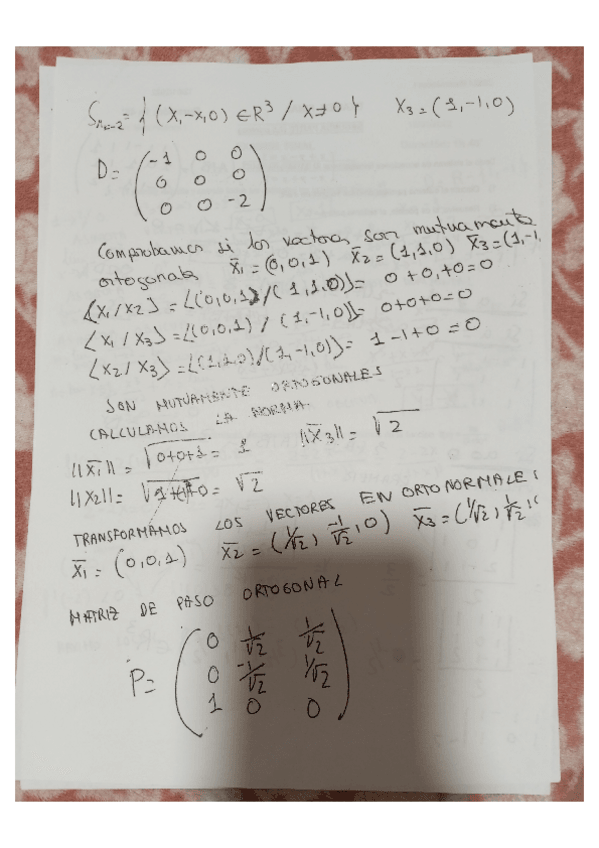 S = { (x,-x,0) ∈ R³ / x≠0 } X₃ = (1,-1,0)
D = ( -1 0 0
0 0 0
0 0 -2 )
Comprobamos si los vectores son mutuamente
ortogonales X̄₁ = (0,0,1) X̄₂ = (1,1,0) X̄₃ = (1,-1,
⟨X₁/X₂⟩ = ⟨(0,0,1)/(1,1,0)⟩ = 0+0+0=0
⟨X₁/X₃⟩ = ⟨(0,0,1)/(1,-1,0)⟩ = 0+0+0=0
⟨X₂/X₃⟩ = ⟨(1,1,0)/(1,-1,0)⟩ = 1-1+0=0
SON MUTUAMENTE ORTOGONALES
CALCULAMOS LA NORMA
||X̄₁|| = √0+0+1 = 1 ||X̄₃|| = √2
||X₂|| = √1+1+0 = √2
TRANSFORMAMOS LOS VECTORES EN ORTONORMALE
X̄₁ = (0,0,1) X̄₂ = (1/√2, -1/√2, 0) X̄₃ = (1/√2, 1/√2,
MATRIZ DE PASO ORTOGONAL
P = ( 0 1/√2 1/√2
0 -1/√2 1/√2
1 0 0 )